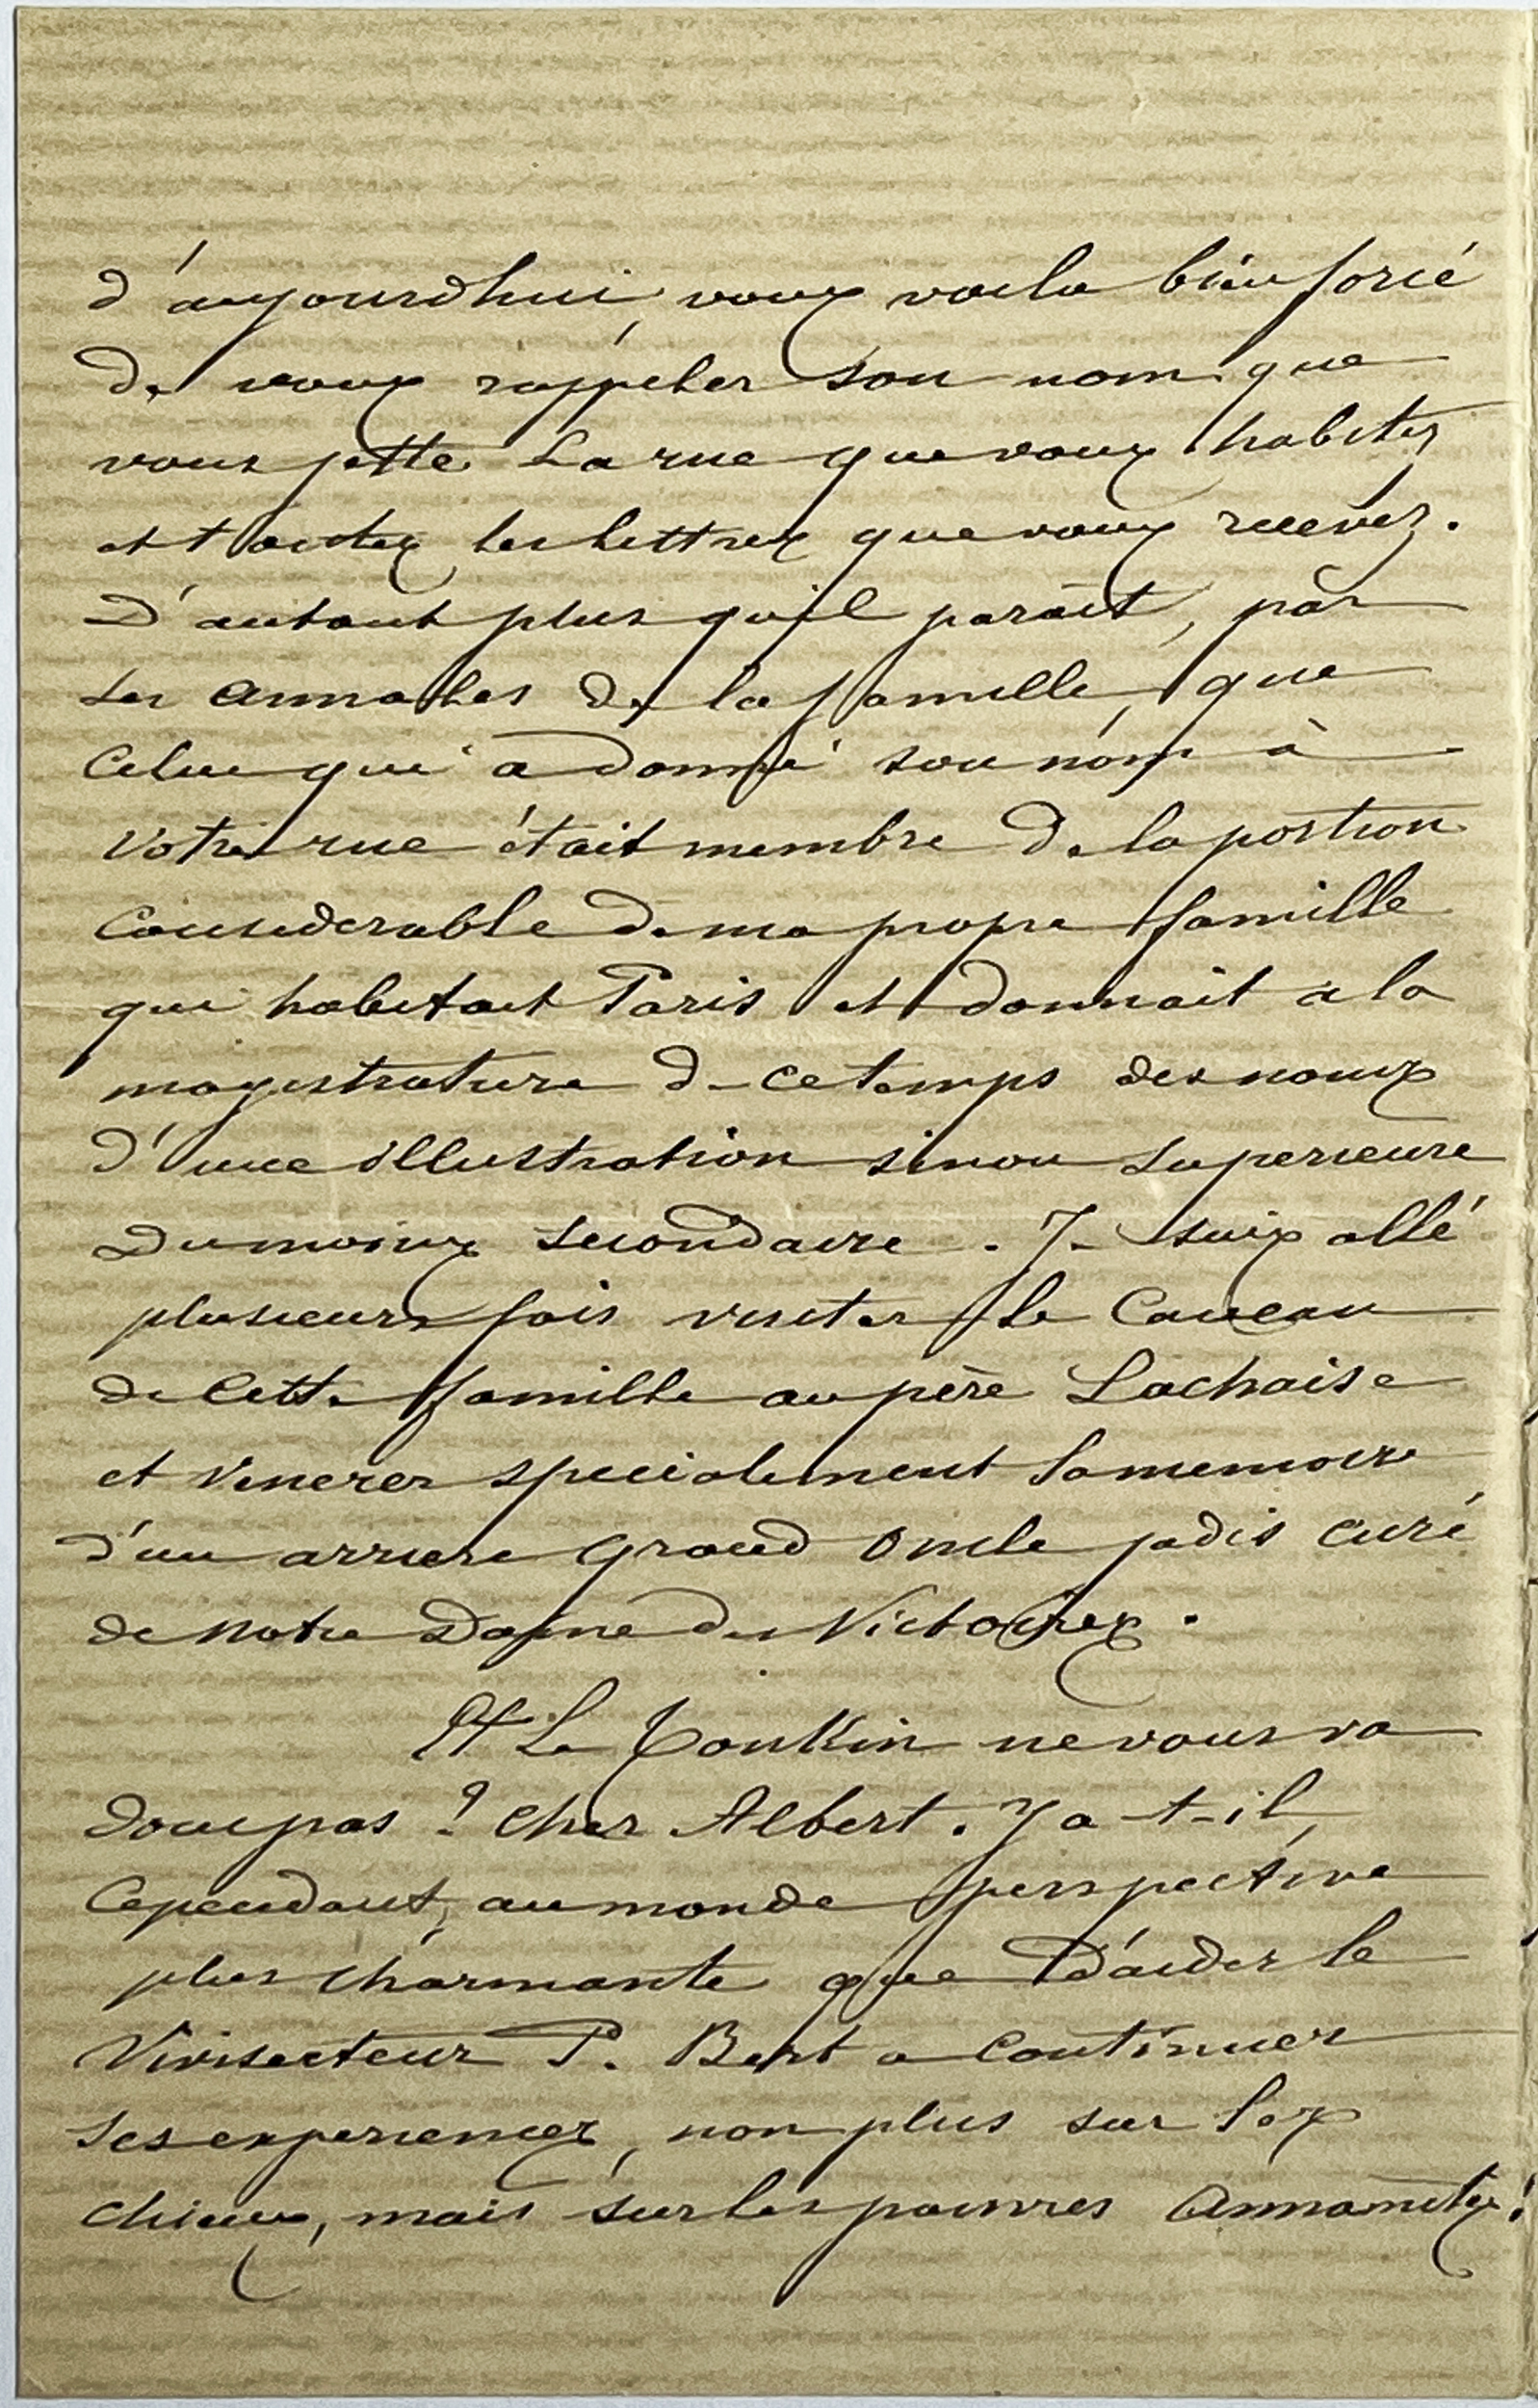 d'aujourdhui, vous voila bien forcé
de vous rappeler son nom que
vous jette la rue que vous habitez
et toutes les lettres que vous recevez.
D'autant plus qu'il paraît, par
les annales de la famille, que
celui qui a donné son nom à
votre rue était membre de la portion
considerable de ma propre famille
qui habitait Paris et donnait a la
magistrature de ce temps des noms
d'une illustration sinon superieure
du moins secondaire. Je suis allé
plusieurs fois visiter le caveau
de cette famille au père Lachaise
et venerer specialement la memoire
d'un arriere grand oncle jadis curé
de Notre Dame des Victoires.
Et le Tonkin ne vous va
donc pas ? cher Albert. Y a-t-il,
cependant, au monde perspective
plus charmante que d'aider le
Vivisecteur P. Bert a continuer
ses experiences, non plus sur les
chiens, mais sur les pauvres Annamites!